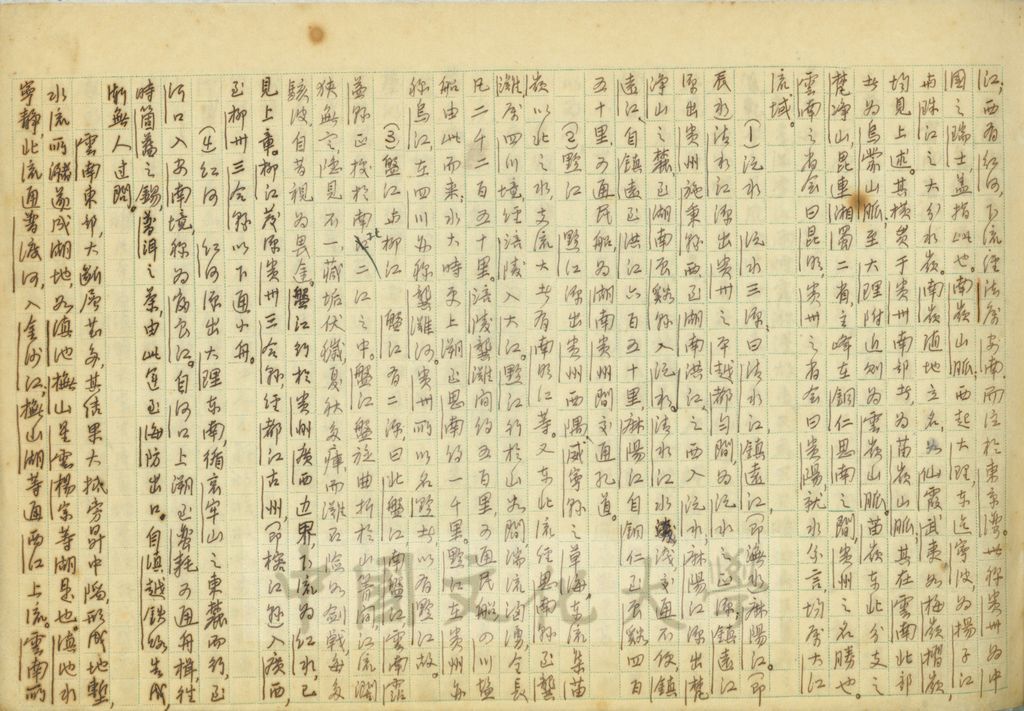 江，西有紅河，下流經法屬安南而注於東京灣。世稱貴州為中
國之瑞士，蓋指此也。南嶺山脈，西起大理，東迄寧波，為楊子江
南珠江之大分水嶺。南嶺隨地立名，如仙霞武夷如梅嶺摺嶺，
均見上述。其橫貫于貴州南部者，為苗嶺山脈；其在雲南北部
者為烏蒙山脈，至大理附近則為雲嶺山脈。苗嶺東北分支之
梵淨山，昆連湘蜀二省，主峰在銅仁思南之間，貴州之名勝也。
雲南之省會曰昆明，貴州之省會曰貴陽，就水分言，均屬大江
流域。
（1）沅水　沅水三源：曰清水江，鎮遠江（即潕水）麻陽江。（即
辰水）清水江源出貴州之平越都勻間，為沅水之　源，鎮遠江
源出貴州施秉縣西至湖南洪江之西入沅水，麻陽江源出梵
淨山之麓，至湖南辰谿縣入沅水。清水江水淺或通不便，鎮
遠江，自鎮遠至洪江六百五十里，麻陽江自銅仁至辰谿四百
五十里，可通民船，為湖南貴州間交通孔道。
（2）黔江　黔江源出貴州西隅威寧縣之草海，東流集苗
嶺以北之水，支流大者有南明江等。又東北流經思南縣至龔
灘，屬四川境，經涪陵入大江。黔江行於山谷間，湍流洶湧，全長
凡二千二百五十里。涪陵龔灘間約五百里，可通民船，四川鹽
船由此而來，水大時更上溯至思南約一千里。黔江在貴州亦
稱烏江，在四川亦稱龔灘河。貴州所以名黔者，以有黔江故。
（3）盤江與柳江　盤江有二源，曰北盤江，南盤江，雲南霑
益縣正枝於南北二江之中。盤江盤旋曲折於山箐間，江流濶
狹無定，隱見不一，藏垢伏穢，夏秋多瘴，而灘石險如劍戟，每多
駭波，自昔視為畏途。盤江行於貴州廣西邊界，下流為紅水，已
見上章。柳江發源貴州三合縣，經都江古州，（即榕江縣）入廣西，
至柳州三合縣以下通小舟。
（4）紅河　紅河源出大理東南，循哀牢山之東麓而行，至
河口入安南境，稱為富良江。自河口上溯至蠻耗可通舟楫，往
時箇舊之錫，普洱之茶，由此運至海防出口。自滇越鐵路告成，
漸無人过問。
雲南東部，大斷層甚多，其結果大抵旁昇中陷，形成地塹，
水流所瀦，遂成湖地，如滇池撫山星雲楊宗等湖是也。滇池水
寧靜，北流通普渡河，入金沙江；撫山湖等通西江上流。雲南所